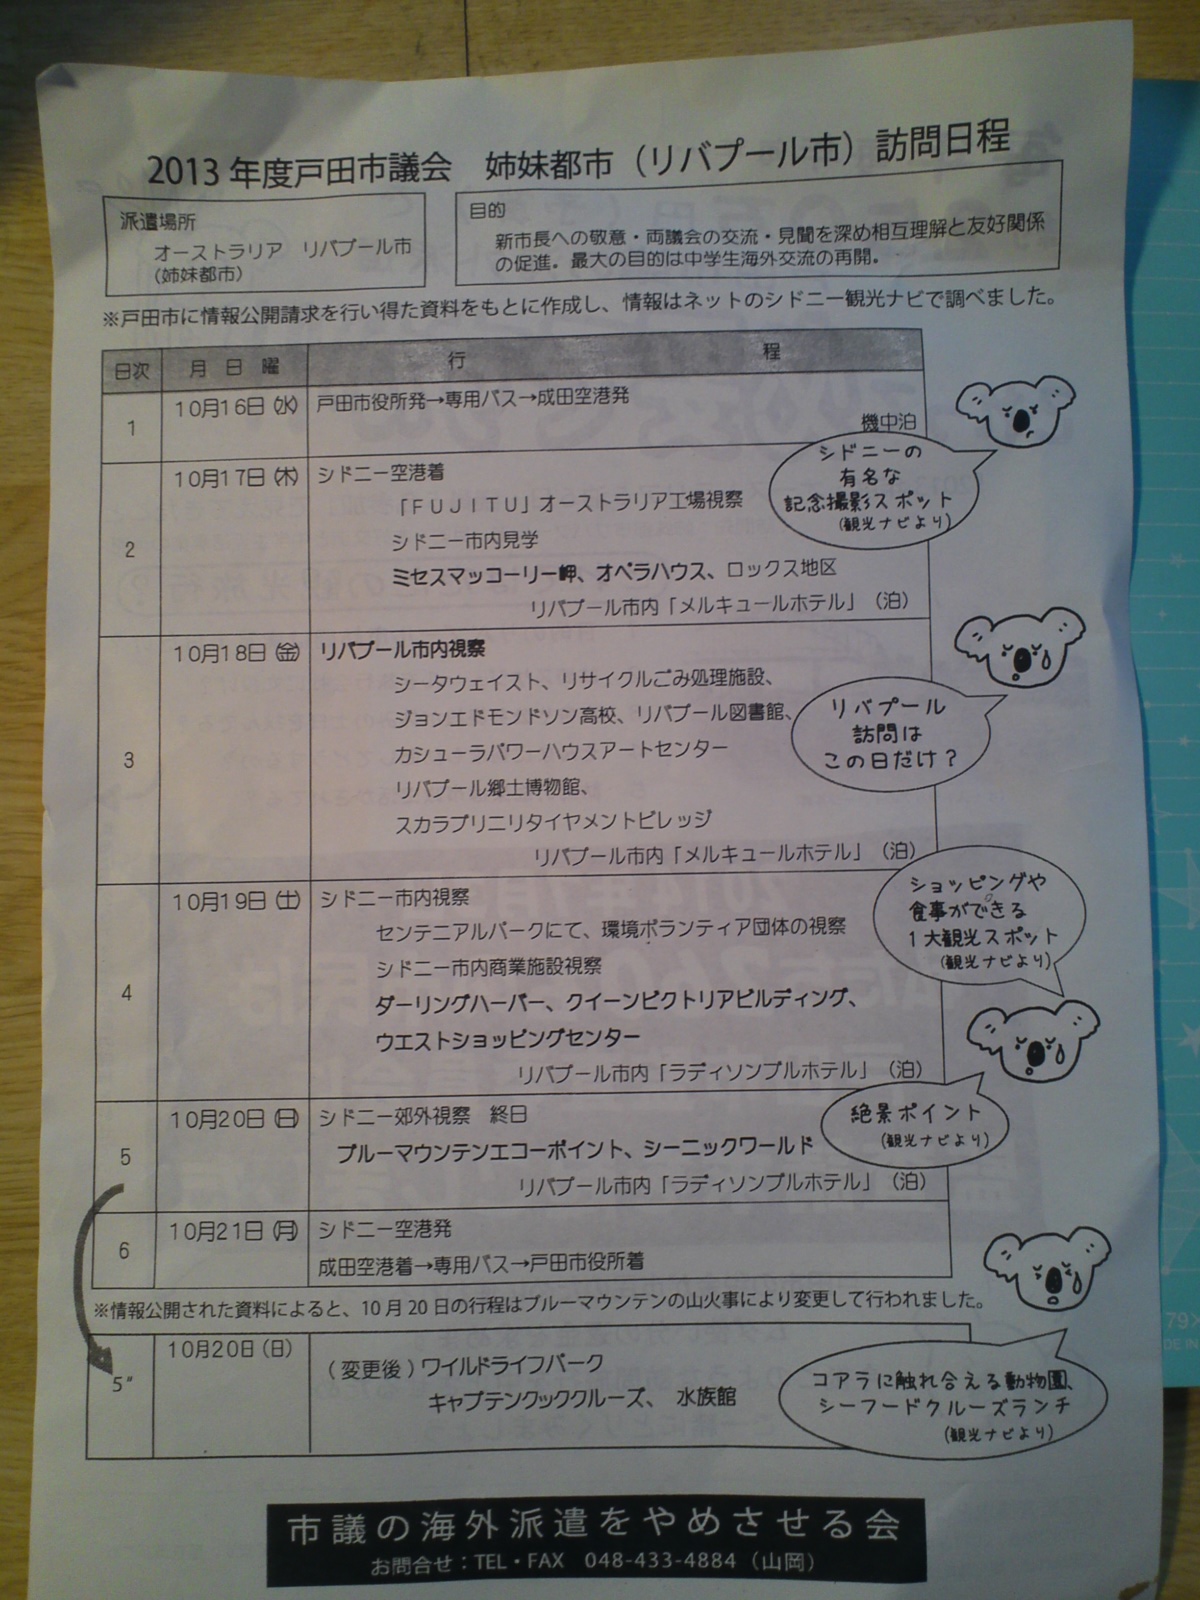 2013年度戸田市議会　姉妹都市（リバプール市）訪問日程
派遣場所
オーストラリア　リバプール市
（姉妹都市）
目的
新市長への敬意・両議会の交流・見聞を深め相互理解と友好関係
の促進。最大の目的は中学生海外交流の再開。
※戸田市に情報公開請求を行い得た資料をもとに作成し、情報はネットのシドニー観光ナビで調べました。
日次　月　日　曜　行　程
1　10月16日㈬　戸田市役所発→専用バス→成田空港発
機中泊
シドニーの
有名な
記念撮影スポット
（観光ナビより）
2　10月17日㈭　シドニー空港着
「ＦＵＪＩＴＵ」オーストラリア工場視察
シドニー市内見学
ミセスマッコーリー岬、オペラハウス、ロックス地区
リバプール市内「メルキュールホテル」（泊）
3　10月18日㈮　リバプール市内視察
シータウェイスト、リサイクルごみ処理施設、
ジョンエドモンドソン高校、リバプール図書館、
カシューラパワーハウスアートセンター
リバプール郷土博物館、
スカラブリニリタイヤメントビレッジ
リバプール市内「メルキュールホテル」（泊）
リバプール
訪問は
この日だけ？
4　10月19日㈯　シドニー市内視察
センテニアルパークにて、環境ボランティア団体の視察
シドニー市内商業施設視察
ダーリングハーバー、クイーンビクトリアビルディング、
ウエストショッピングセンター
リバプール市内「ラディソンブルホテル」（泊）
ショッピングや
食事ができる
１大観光スポット
（観光ナビより）
5　10月20日㈰　シドニー郊外視察　終日
ブルーマウンテンエコーポイント、シーニックワールド
リバプール市内「ラディソンブルホテル」（泊）
絶景ポイント
（観光ナビより）
6　10月21日㈪　シドニー空港発
成田空港着→専用バス→戸田市役所着
※情報公開された資料によると、10月20日の行程はブルーマウンテンの山火事により変更して行われました。
5"　10月20日（日）　（変更後）ワイルドライフパーク
キャプテンクッククルーズ、　水族館
コアラに触れ合える動物園、
シーフードクルーズランチ
（観光ナビより）
市議の海外派遣をやめさせる会
お問合せ：TEL・FAX　048-433-4884（山岡）